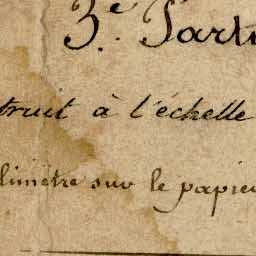 3.e Parti
truit à l'échelle
limètre sur le papier